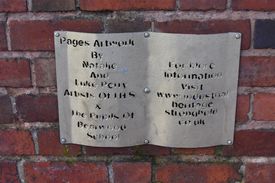 Pages Artwork
By
Natalie
And
Luke Perry
Artists Of I.H.S
&
The Pupils Of
Benwood
School
For More
Information
Visit
www.industrial
heritage
stronghold
.co.uk